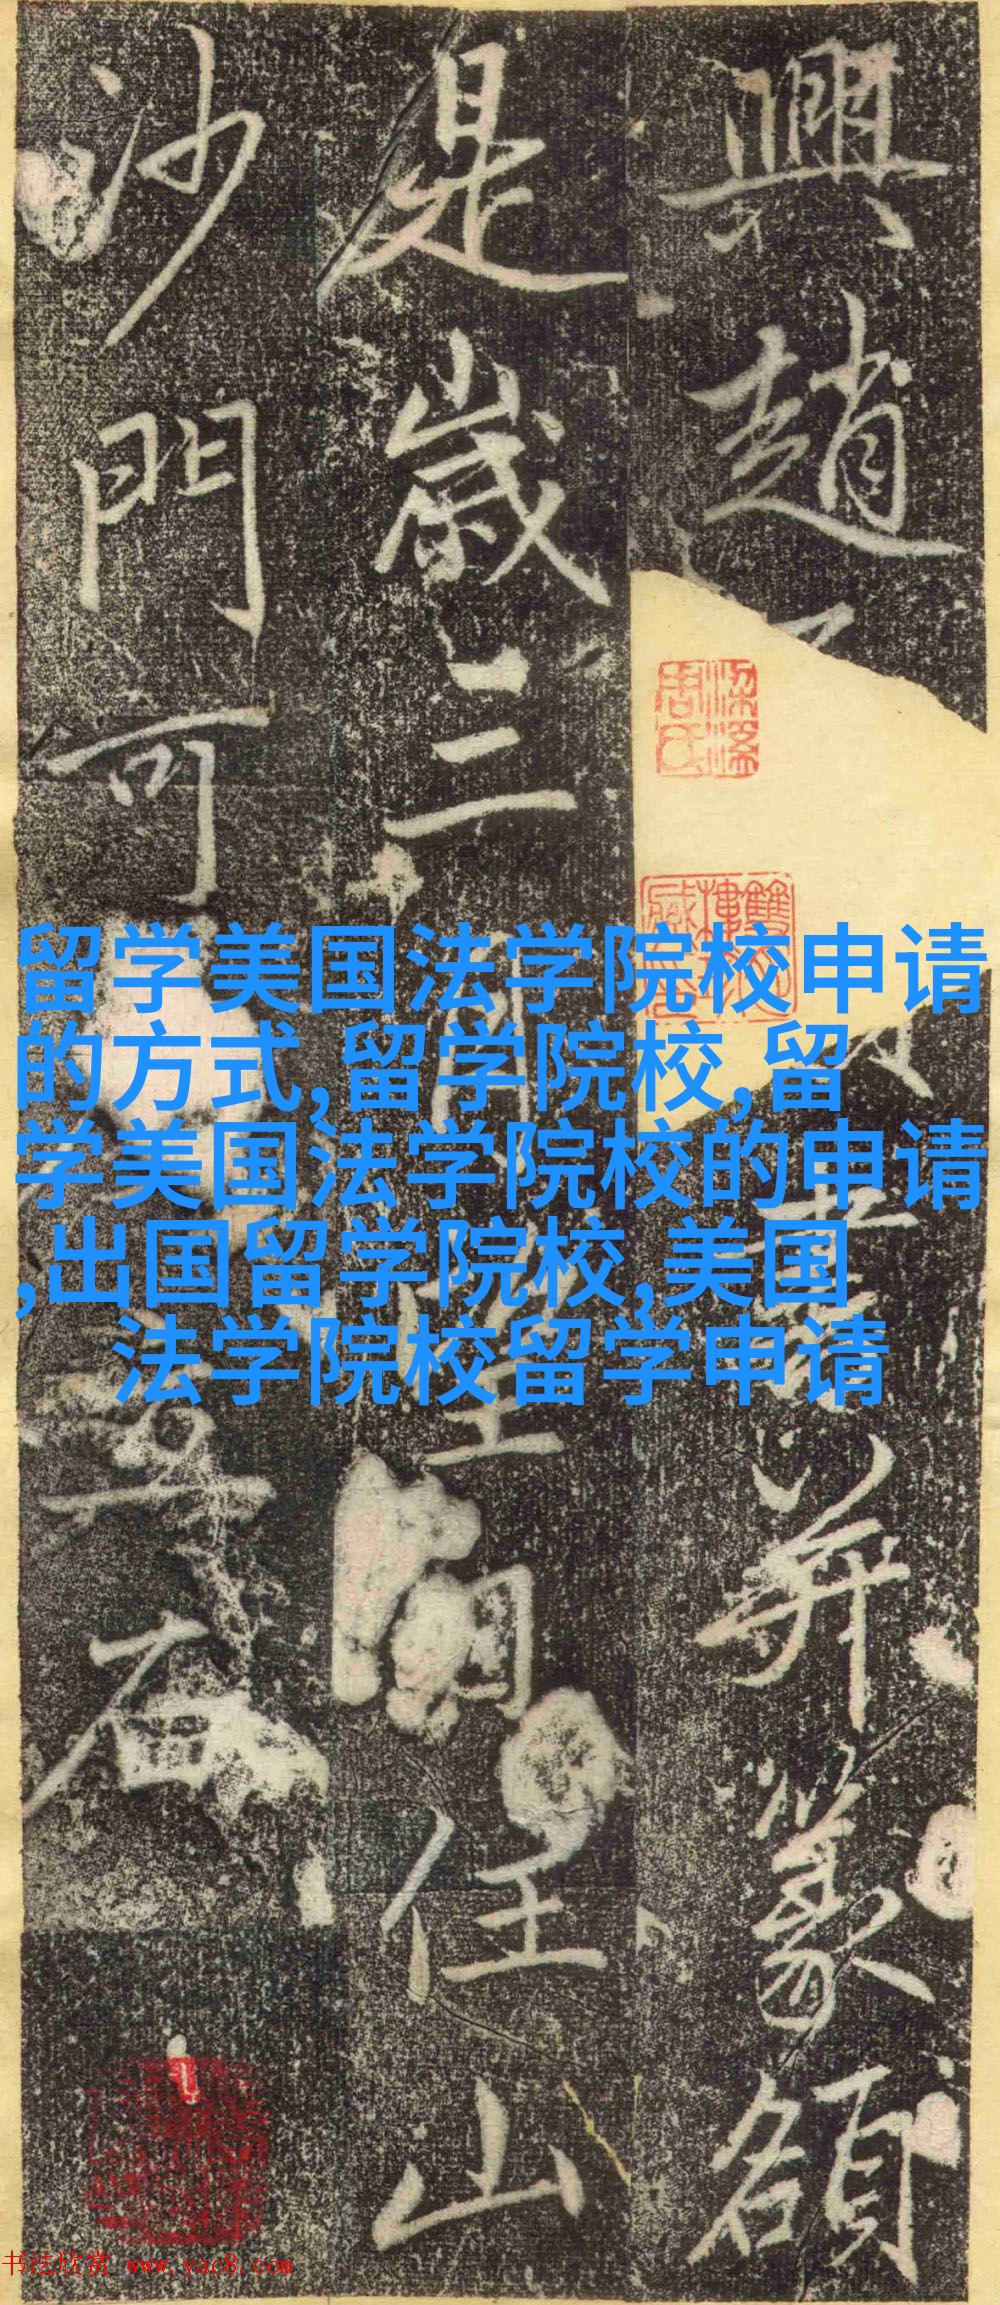 興趙
并篆額
是歲二月
住山
沙門可
梁溪
周氏
留学美国法学院校申请
的方式,留学院校,留
学美国法学院校的申请
,出国留学院校,美国
法学院校留学申请
书法欣赏 www.yac8.com